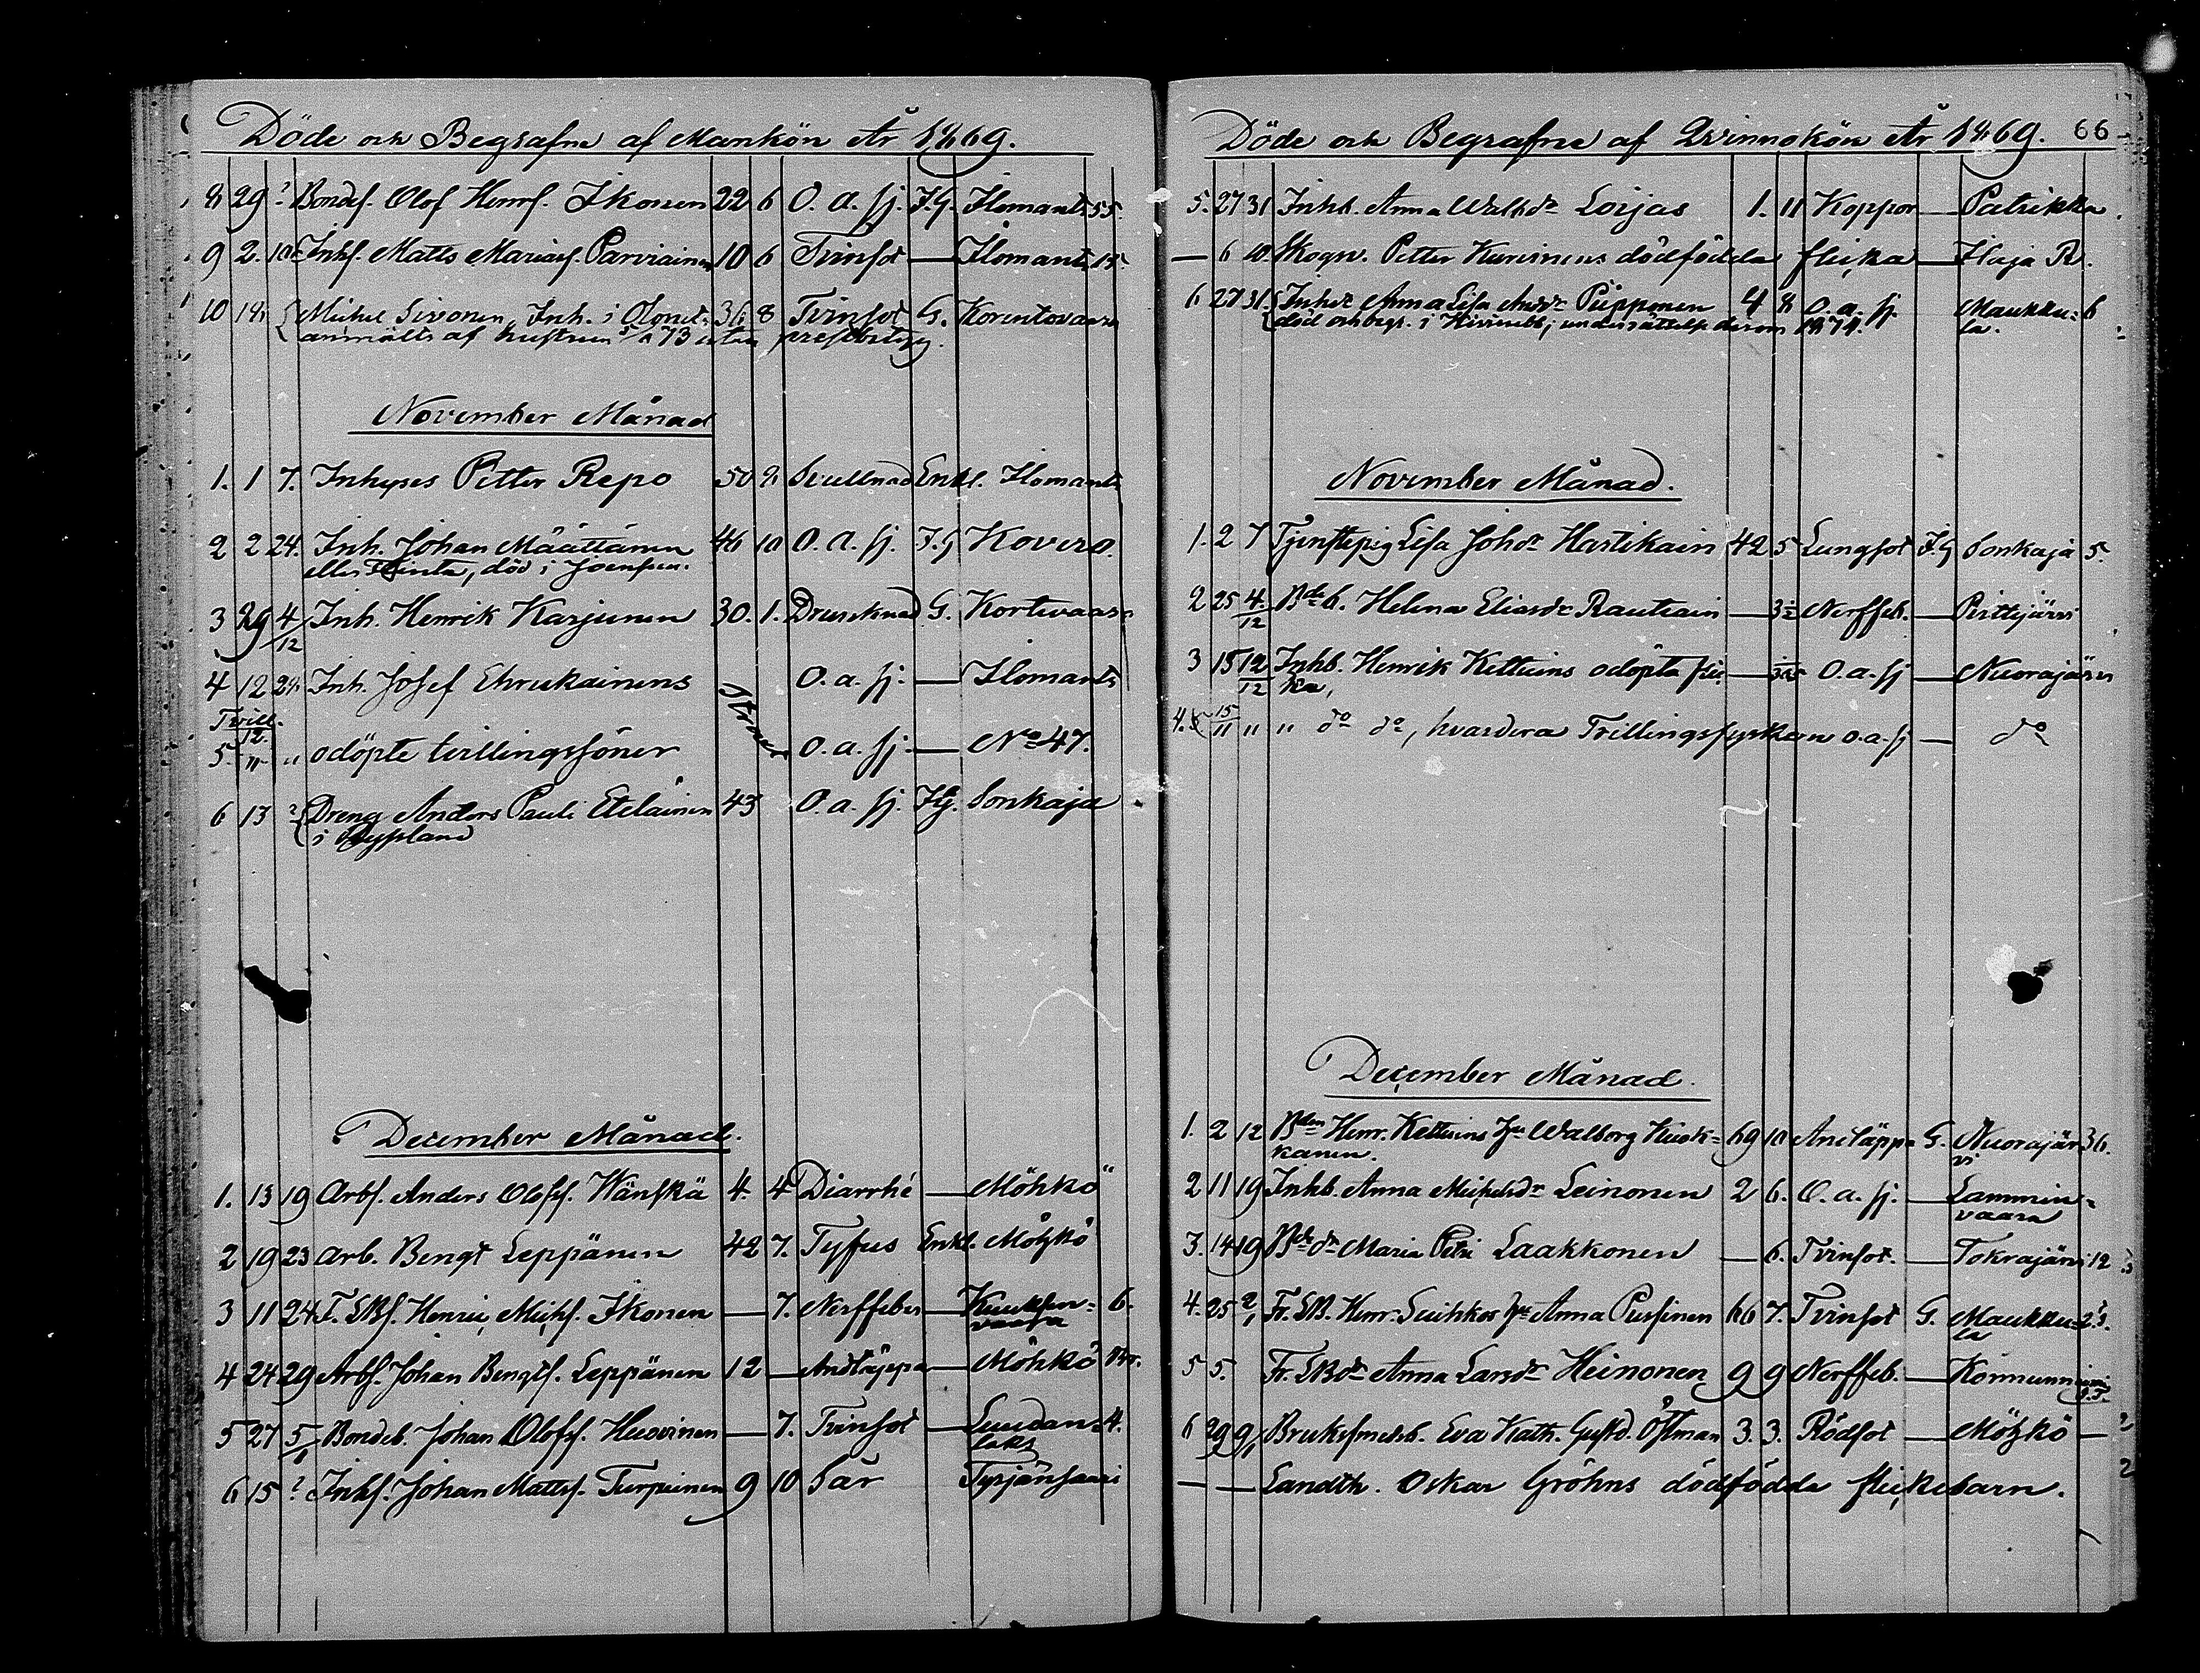 Döde och Begrafne af Mankön År 1869.
8 29 ? Bondes. Olof Henrs. Ikonen 22 6 O. a. sj. F.G. Ilomants 55.
9 2. 10 Inhs. Matts Mariæs. Parviainen 10 6 Tvinsot — Ilomants 15.
10 18 Michel Sivonen, Inh. i Olonets 36 8 Tvinsot G. Korentovaara
anmälts af hustrun 73 utan prestbetyg.
November Månad
1. 1 7. Inhyses Petter Repo 50 8 Svullnad Enkl. Ilomants
2 2 24. Inh. Johan Määttänen 46 10 O. a. sj. F.G Kovero.
eller Hinta, död i Joensuu.
3 29 4/12 Inh. Henrik Karjunen 30. 1. Drunknad G. Kortevaara
4 12 28 Inh. Josef Ehrukainens O. a. sj. — Ilomants
Tvill.
5. 12/11 " odöpte tvillingssöner O. a. sj. — No 47.
6 13 ? Dreng Anders Pauli Eteläinen 43 O. a. sj. F.G. Sonkaja
i Ryssland
December Månad.
1. 13 19 Arbs. Anders Olofs. Hänskä 4. 4 Diarrhé — Möhkö
2 19 23 Arb. Bengt Leppänen 42 7. Tyfus Enkl. Möhkö
3 11 24 F. LBs. Henric Michs. Ikonen — 7. Nerffeber — Kuuksen= 6.
vaara
4 24 29 Arbs. Johan Bengts. Leppänen 12 — Andtäppa — Möhkö
5 27 5/1 Bondeb. Johan Olofs. Huovinen — 7. Tvinsot — Luudan= 4.
laks
6 15 ? Inhs. Johan Mattss. Turpeinen 9 10 Sår Tyrjänsaari
Döde och Begrafne af Qvinnokön År 1869. 66
5. 27 31 Inhb. Anna Walbdr Loijas 1. 11 Koppor — Patrikka
— 6 10. Skogsv. Petter Kurvinens dödfödda flicka — Haja R.
6 27 31. Inhdr Anna Lisa Andsdr Piipponen 4 8 O. a. sj. Maukku= 6
död och begr. i Kivinebb, underrättelse derom 1874. la.
November Månad.
1. 2 7 Tjenstepig Lisa Johdr Hartikain 42 5 Lungsot F.G Sonkaja 5.
2 25 4/12 Bdeb. Helena Eliasdr Rautiain — Nerffeb. — Riittijärvi
3 15 12/12 Inhb. Henrik Kettuins odöpta flic — O. a. sj — Nuorajärvi
ka,
4. 15/11 " " do do, hvardera Trillingssyskon o. a. sj — do
December Månad.
1. 2 12 Bden Henr. Kettuins Hu Walborg Kuok= 69 10 Andtäppa G. Nuorajär 36.
kanen. vi
2 11 19 Inhb. Anna Michelsdr Leinonen 2 6. O. a. sj. — Lammin=
vaara
3. 14 19 Bdedr Maria Petri Laakkonen — 6. Tvinsot. — Tokrajärvi 12
4. 25 2/1 Fr. LB. Henr. Suihkos Hu Anna Pussinen 66 7. Tvinsot G. Maukku= 23.
la
5 5. Fr. LBdr Anna Larsdr Heinonen 9 9 Nerffeb. — Konnunniemi
6 29 9/1 Bruksmedsb. Eva Kath. Gustd. Östman 3. 3. Rödsot — Möhkö —
— — Landth. Oskar Gröhns dödfödda flickebarn.